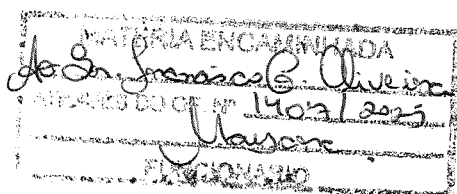 MATÉRIA ENCAMINHADA
Ao Sr. Francisco G. Oliveira
ATRAVÉS DO OF. Nº 1407/2025
FUNCIONÁRIO